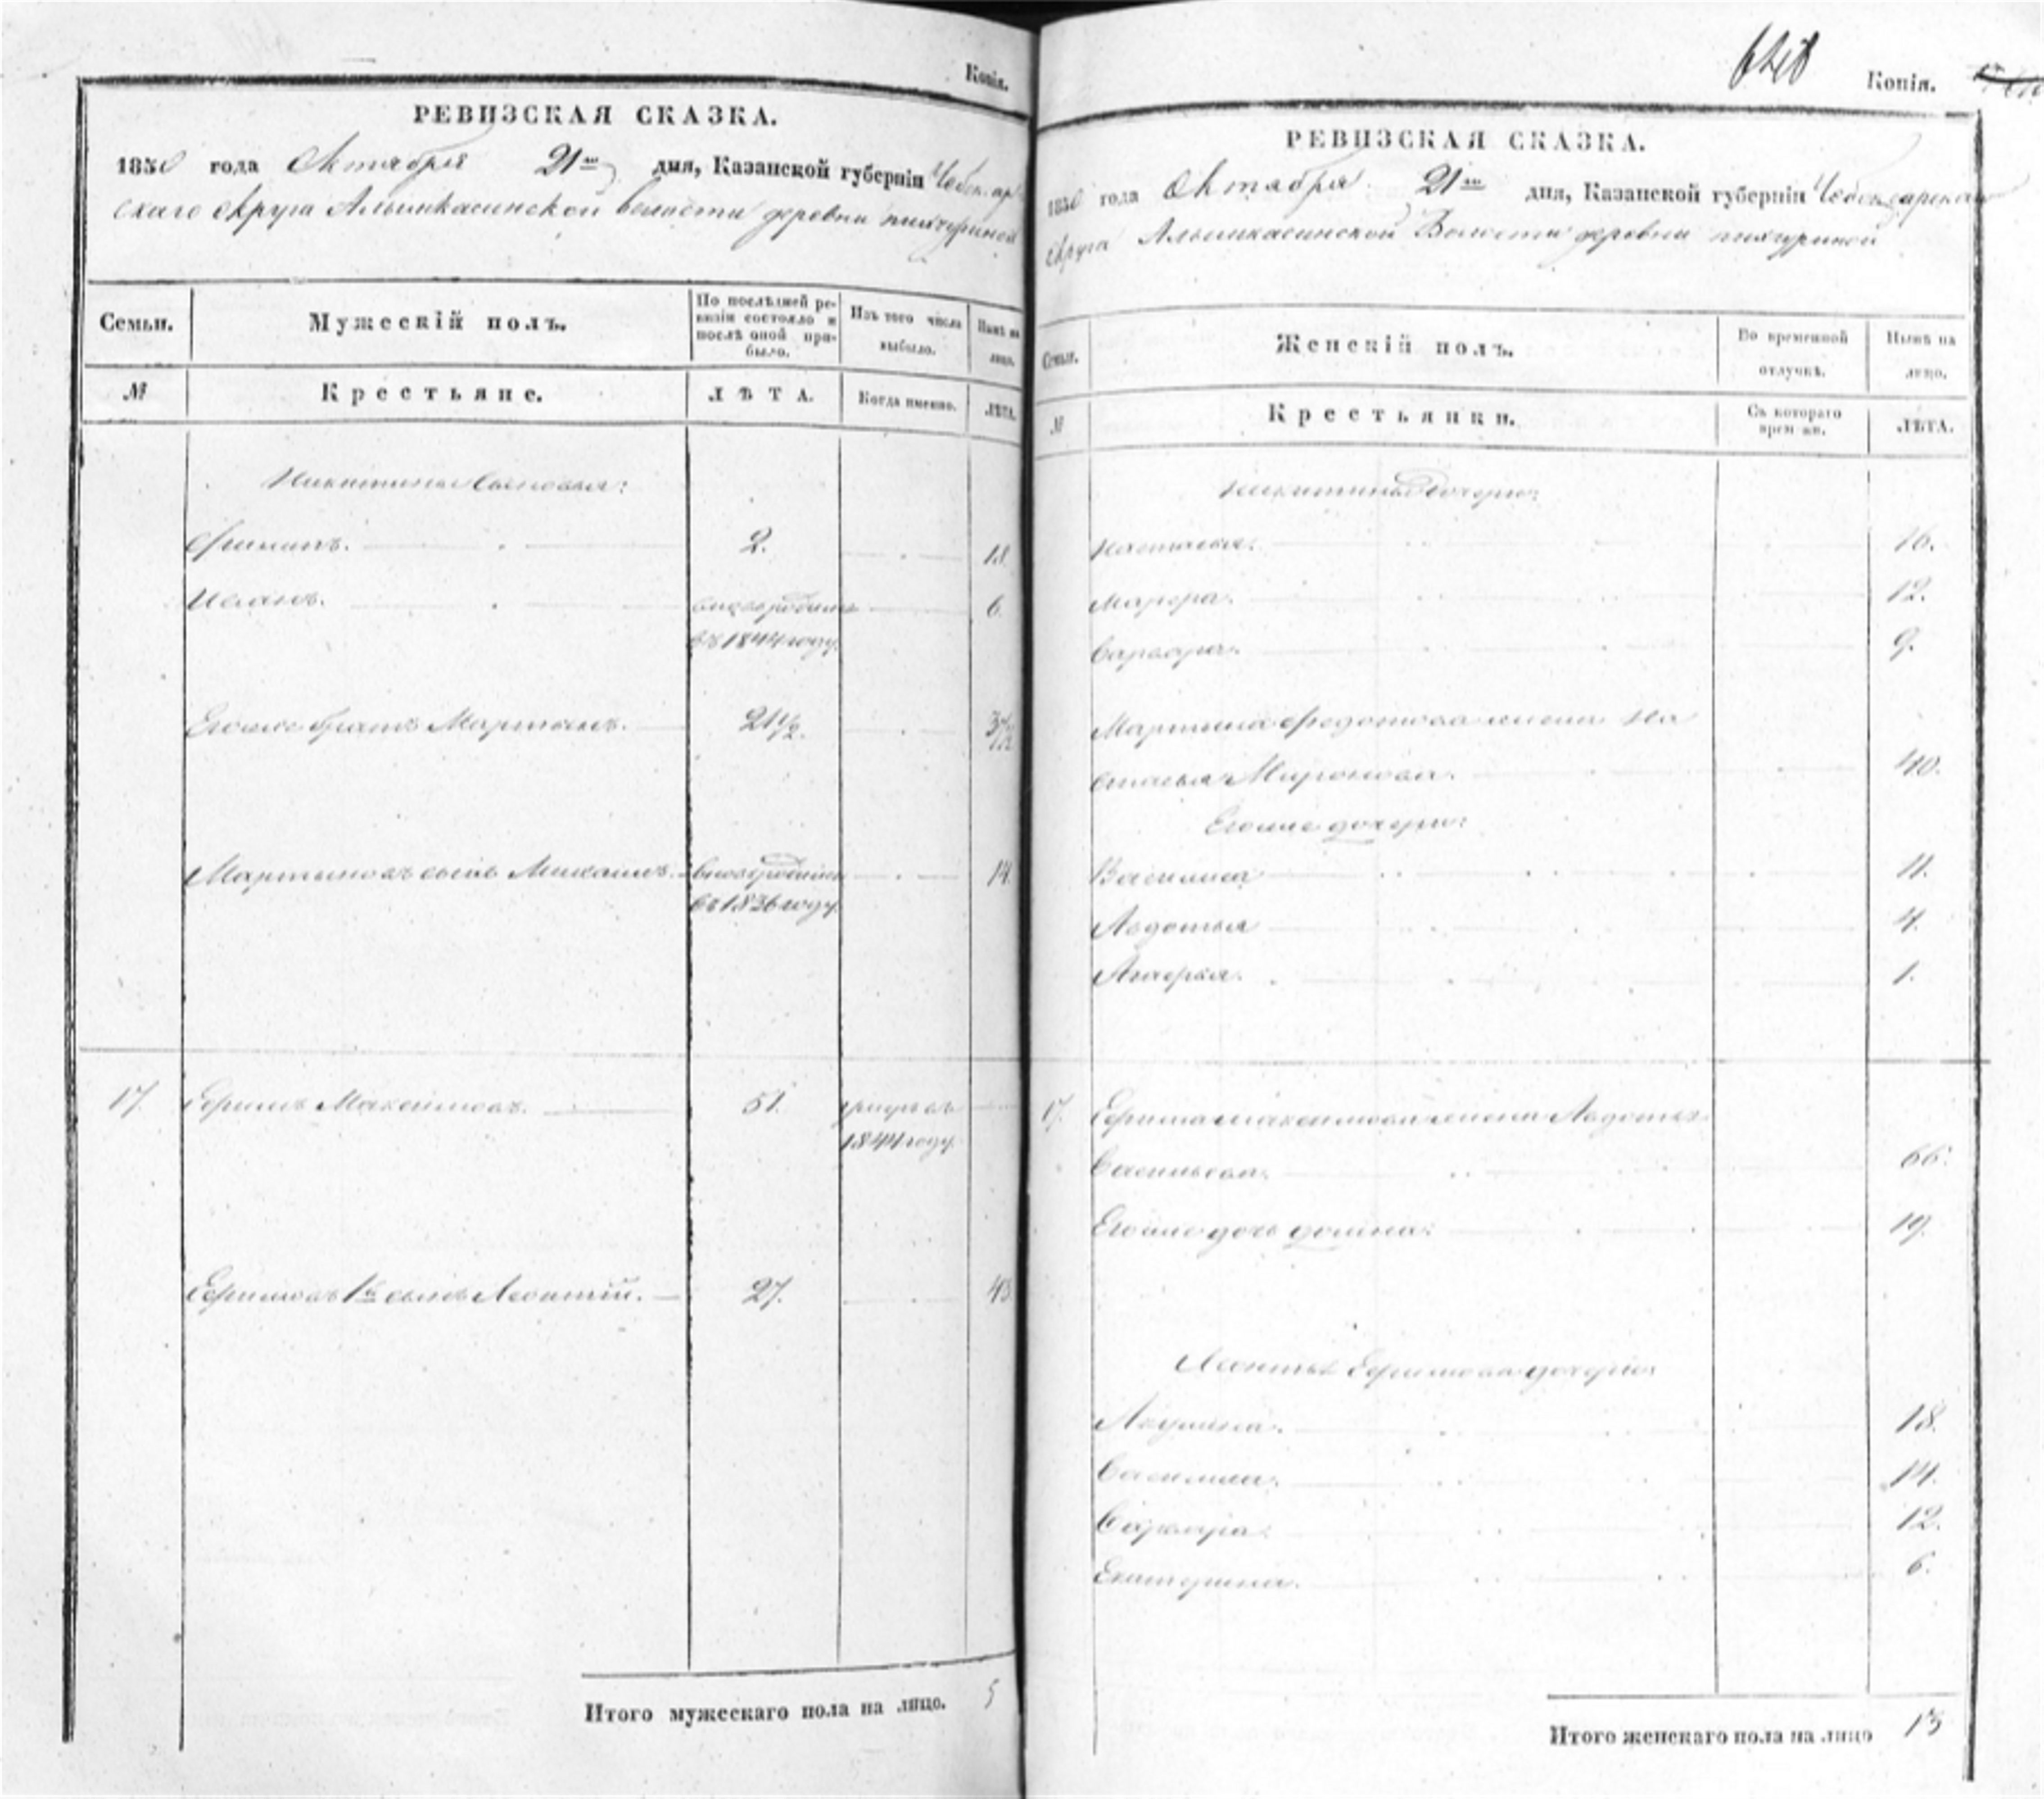 Копія.
РЕВИЗСКАЯ СКАЗКА.
1850 года Октября 21го дня, Казанской губерніи Чебоксар
скаго Округа Алымкасинской Волости деревни пихчуриной
Семьи.
Мужескій полъ.
По послѣдней ре-
визіи состояло и
послѣ оной при-
было.
Изъ того числа
выбыло.
Нынѣ на
лицо.
№
Крестьяне.
ЛѢТА.
Когда именно.
ЛѢТА.
Никитины сыновья:
Филипъ. 2. 18.
Иванъ. 6.
въ 1844 году.
Егоже братъ Мартынъ. 21½.
Мартыновъ сынъ Михаилъ. 14.
въ 1836 году.
17. Ефимъ Максимовъ. 51.
1844 году.
Ефимовъ 1й сынъ Леонтій. 27. 43
Итого мужескаго пола на лицо. 5
Копія.
РЕВИЗСКАЯ СКАЗКА.
1850 года Октября 21го дня, Казанской губерніи Чебоксарскаго
Округа Алымкасинской Волости деревни пихчуриной
Семьи.
Женскій полъ.
Во временной
отлучкѣ.
Нынѣ на
лицо.
№
Крестьянки.
Съ котораго
времени.
ЛѢТА.
Никитины дочери:
Настасья. 16.
Марфа. 12.
Варвара. 9.
Мартына Федотова жена На
стасья Миронова. 40.
Егоже дочери:
Василиса 11.
Авдотья 4.
Агафья. 1.
17. Ефима Максимова жена Авдотья
Васильева. 66.
Егоже дочь 19.
Леонтья Ефимова дочери:
18.
Василиса. 14.
Варвара. 12.
Екатерина. 6.
Итого женскаго пола на лицо 13